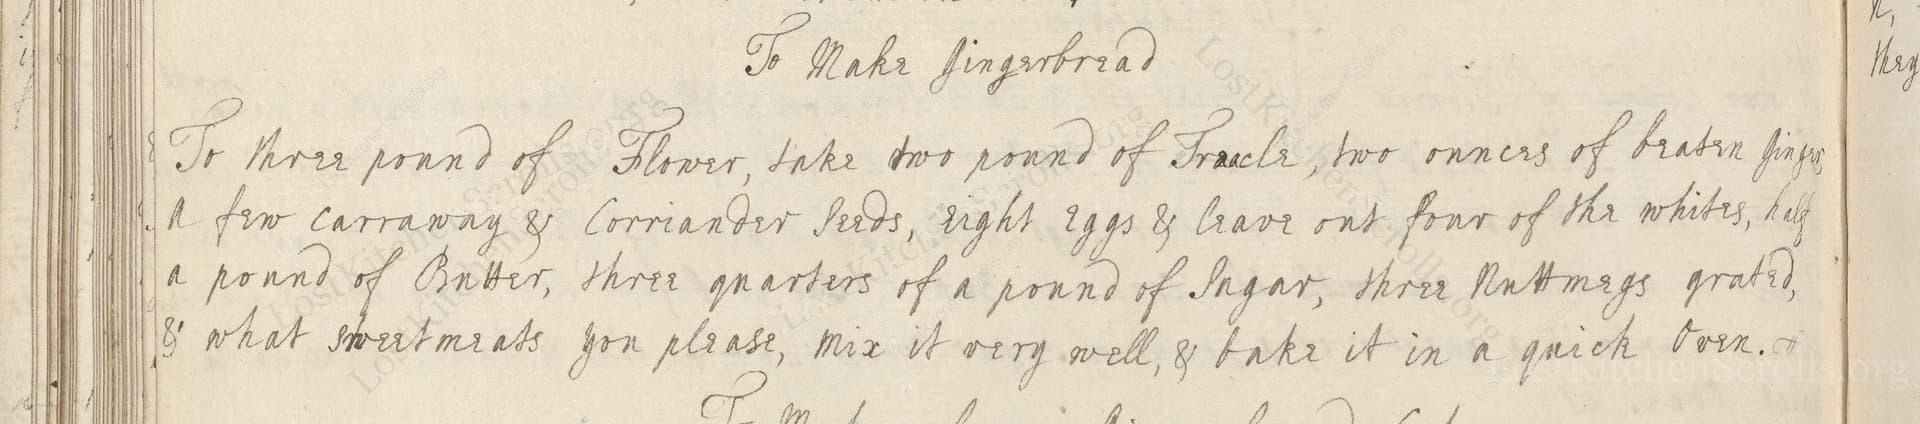 To Make Gingerbread
To three pound of Flower, take two pound of Treacle, two ounces of beaten Ginger,
A few Carraway & Corriander Seeds, Eight Eggs & leave out four of the whites, half
a pound of Butter, three quarters of a pound of Sugar, three Nuttmegs grated,
& what sweetmeats you please, Mix it very well, & bake it in a quick Oven.
they
LostKitchenScrolls.org